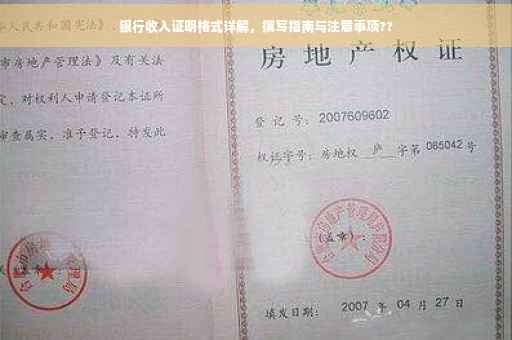 银行收入证明格式详解，撰写指南与注意事项??
人民共和国宪法》
市房地产管理法》及有关法
定，对权利人申请登记本证所
审查属实，准予登记，特发此
房地产权证
登记号：2007609602
权证字号：房地权 庐 字第 065042 号
(盖章)：
填发日期： 2007 年 04 月 27 日